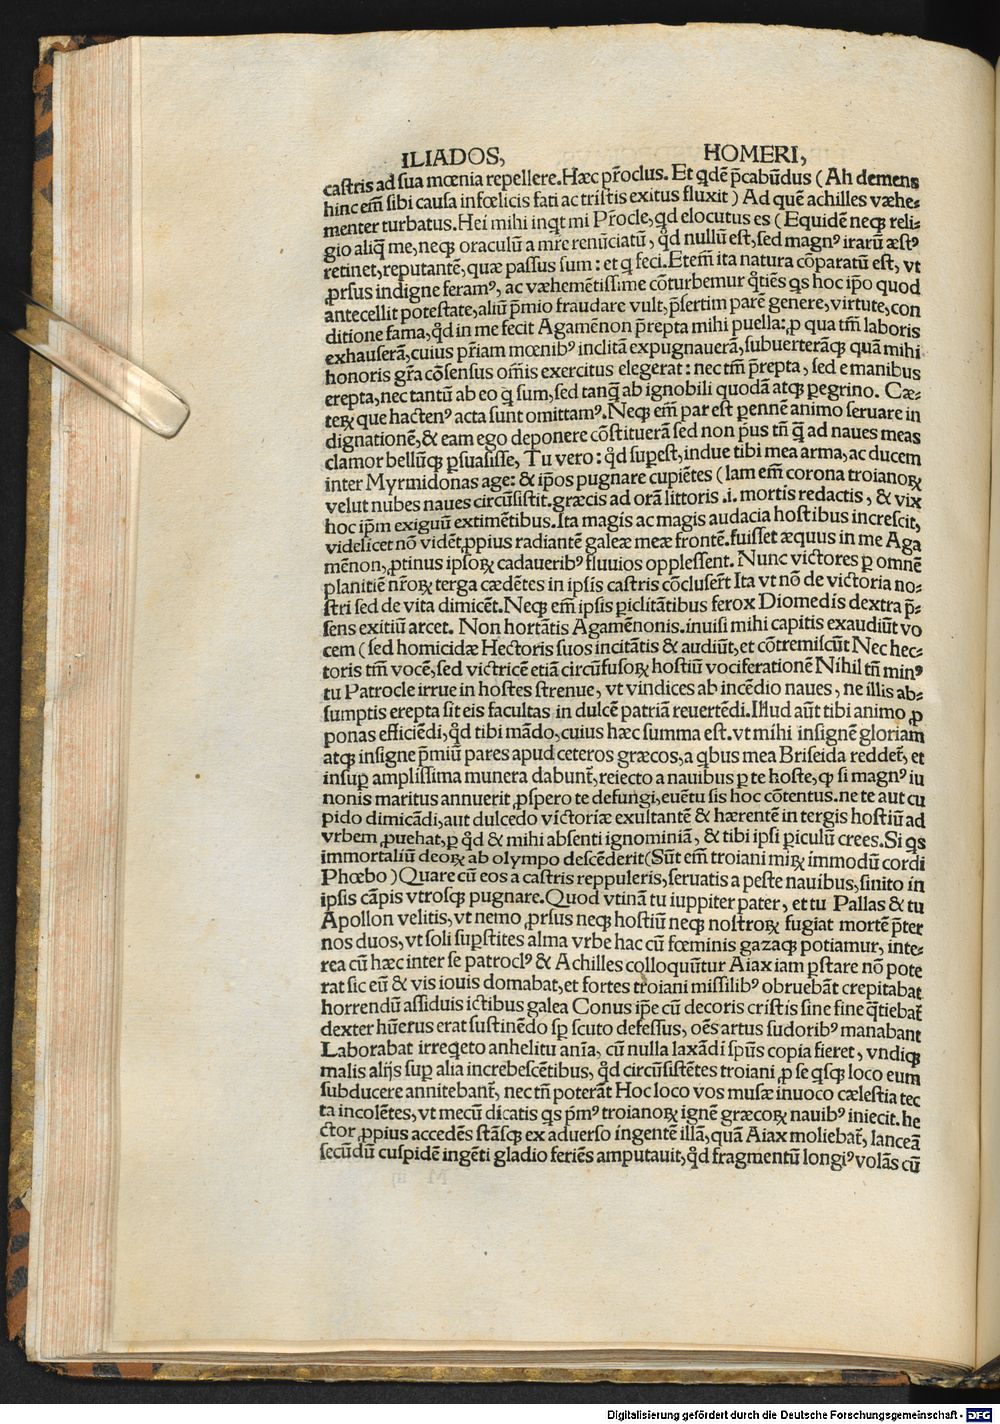 ILIADOS, HOMERI,
castris ad sua mœnia repellere. Hæc pr̃oclus. Et qdẽ p̃cabũdus (Ah demens
hinc em̃ sibi causa infœlicis fati ac tristis exitus fluxit) Ad quẽ achilles væhe-
menter turbatus. Hei mihi inqt mi Pr̃ocle, qd elocutus es (Equidẽ neqꝫ reli-
gio aliq̃ me, neqꝫ oraculũ a mr̃e renũciatũ, qd nullũ est, sed magnꝰ irarũ æstꝰ
retinet, reputantẽ, quæ passus sum: et q feci. Etem̃ ita natura cõparatũ est, vt
ꝓrsus indigne feramꝰ, ac væhemẽtissime cõturbemur qtiẽs qs hoc ip̃o quod
antecellit potestate, aliũ p̃mio fraudare vult, p̃sertim parẽ genere, virtute, con
ditione fama, qd in me fecit Agamẽnon p̃repta mihi puella: ꝓ qua tm̃ laboris
exhauserã, cuius pr̃iam mœnibꝰ inclitã expugnauerã, subuerterãqꝫ quã mihi
honoris gr̃a cõsensus om̃is exercitus elegerat: nec tm̃ p̃repta, sed e manibus
erepta, nec tantũ ab eo q̃ sum, sed tanq̃ ab ignobili quodã atqꝫ ꝑegrino. Cæ-
teꝝ que hactenꝰ acta sunt omittamꝰ. Neqꝫ em̃ par est ꝑennẽ animo seruare in
dignationẽ, & eam ego deponere cõstituerã sed non p̃us tñ q̃ ad naues meas
clamor bellũqꝫ ꝑsuasisse, Tu vero: qd suꝑest, indue tibi mea arma, ac ducem
inter Myrmidonas age: & ip̃os pugnare cupiẽtes (Iam em̃ corona troianoꝝ
velut nubes naues circũsistit. græcis ad orã littoris .i. mortis redactis, & vix
hoc ip̃m exiguũ extimẽtibus. Ita magis ac magis audacia hostibus increscit,
videlicet nõ vidẽt ꝓpius radiantẽ galeæ meæ frontẽ. fuisset æquus in me Aga
mẽnon, ꝓtinus ipsoꝝ cadaueribꝰ fluuios opplessent. Nunc victores ꝑ omnẽ
planitiẽ nr̃oꝝ terga cædẽtes in ipsis castris cõcluser̃t Ita vt nõ de victoria no-
stri sed de vita dimicẽt. Neqꝫ em̃ ipsis ꝑiclitãtibus ferox Diomedis dextra p̃-
sens exitiũ arcet. Non hortãtis Agamẽnonis. inuisi mihi capitis exaudiũt vo
cem (sed homicidæ Hectoris suos incitãtis & audiũt, et cõtremiscũt Nec hec-
toris tm̃ vocẽ, sed victricẽ etiã circũfusoꝝ hostiũ vociferationẽ Nihil tñ minꝰ
tu Patrocle irrue in hostes strenue, vt vindices ab incẽdio naues, ne illis ab-
sumptis erepta sit eis facultas in dulcẽ patriã reuertẽdi. Illud aũt tibi animo ꝓ
ponas efficiẽdi, qd tibi mãdo, cuius hæc summa est. vt mihi insignẽ gloriam
atqꝫ insigne p̃miũ pares apud ceteros græcos, a qbus mea Briseida reddet̃, et
insuꝑ amplissima munera dabunt̃, reiecto a nauibus ꝑ te hoste, qꝫ si magnꝰ iu
nonis maritus annuerit ꝓspero te defungi, euẽtu sis hoc cõtentus. ne te aut cu
pido dimicãdi, aut dulcedo victoriæ exultantẽ & hærentẽ in tergis hostiũ ad
vrbem ꝓuehat, ꝑ qd & mihi absenti ignominiã, & tibi ipsi ꝑiculũ crees. Si qs
immortaliũ deoꝝ ab olympo descẽderit (Sũt em̃ troiani miꝝ immodũ cordi
Phœbo) Quare cũ eos a castris reppuleris, seruatis a peste nauibus, sinito in
ipsis cãpis vtrosqꝫ pugnare. Quod vtinã tu iuppiter pater, et tu Pallas & tu
Apollon velitis, vt nemo ꝓrsus neqꝫ hostiũ neqꝫ nostroꝝ fugiat mortẽ p̃ter
nos duos, vt soli suꝑstites alma vrbe hac cũ fœminis gazaqꝫ potiamur, inte-
rea cũ hæc inter se patroclꝰ & Achilles colloquũtur Aiax iam ꝑstare nõ pote
rat sic eũ & vis iouis domabat, et fortes troiani missilibꝰ obruebãt crepitabat
horrendũ assiduis ictibus galea Conus ip̃e cũ decoris cristis sine fine q̃tiebat̃
dexter hũerus erat sustinẽdo sꝑ scuto defessus, oẽs artus sudoribꝰ manabant
Laborabat irreqeto anhelitu anĩa, cũ nulla laxãdi spũs copia fieret, vndiqꝫ
malis alijs suꝑ alia increbescẽtibus, qd circũsistẽtes troiani ꝓ se qsqꝫ loco eum
subducere annitebant̃, nec tñ poterãt Hoc loco vos musæ inuoco cælestia tec
ta incolẽtes, vt mecũ dicatis qs p̃mꝰ troianoꝝ ignẽ græcoꝝ nauibꝰ iniecit. he
ctor ꝓpius accedẽs stãsqꝫ ex aduerso ingentẽ illã, quã Aiax moliebat̃, lanceã
secũdũ cuspidẽ ingẽti gladio feriẽs amputauit, qd fragmentũ longiꝰ volãs cũ
Digitalisierung gefördert durch die Deutsche Forschungsgemeinschaft - DFG